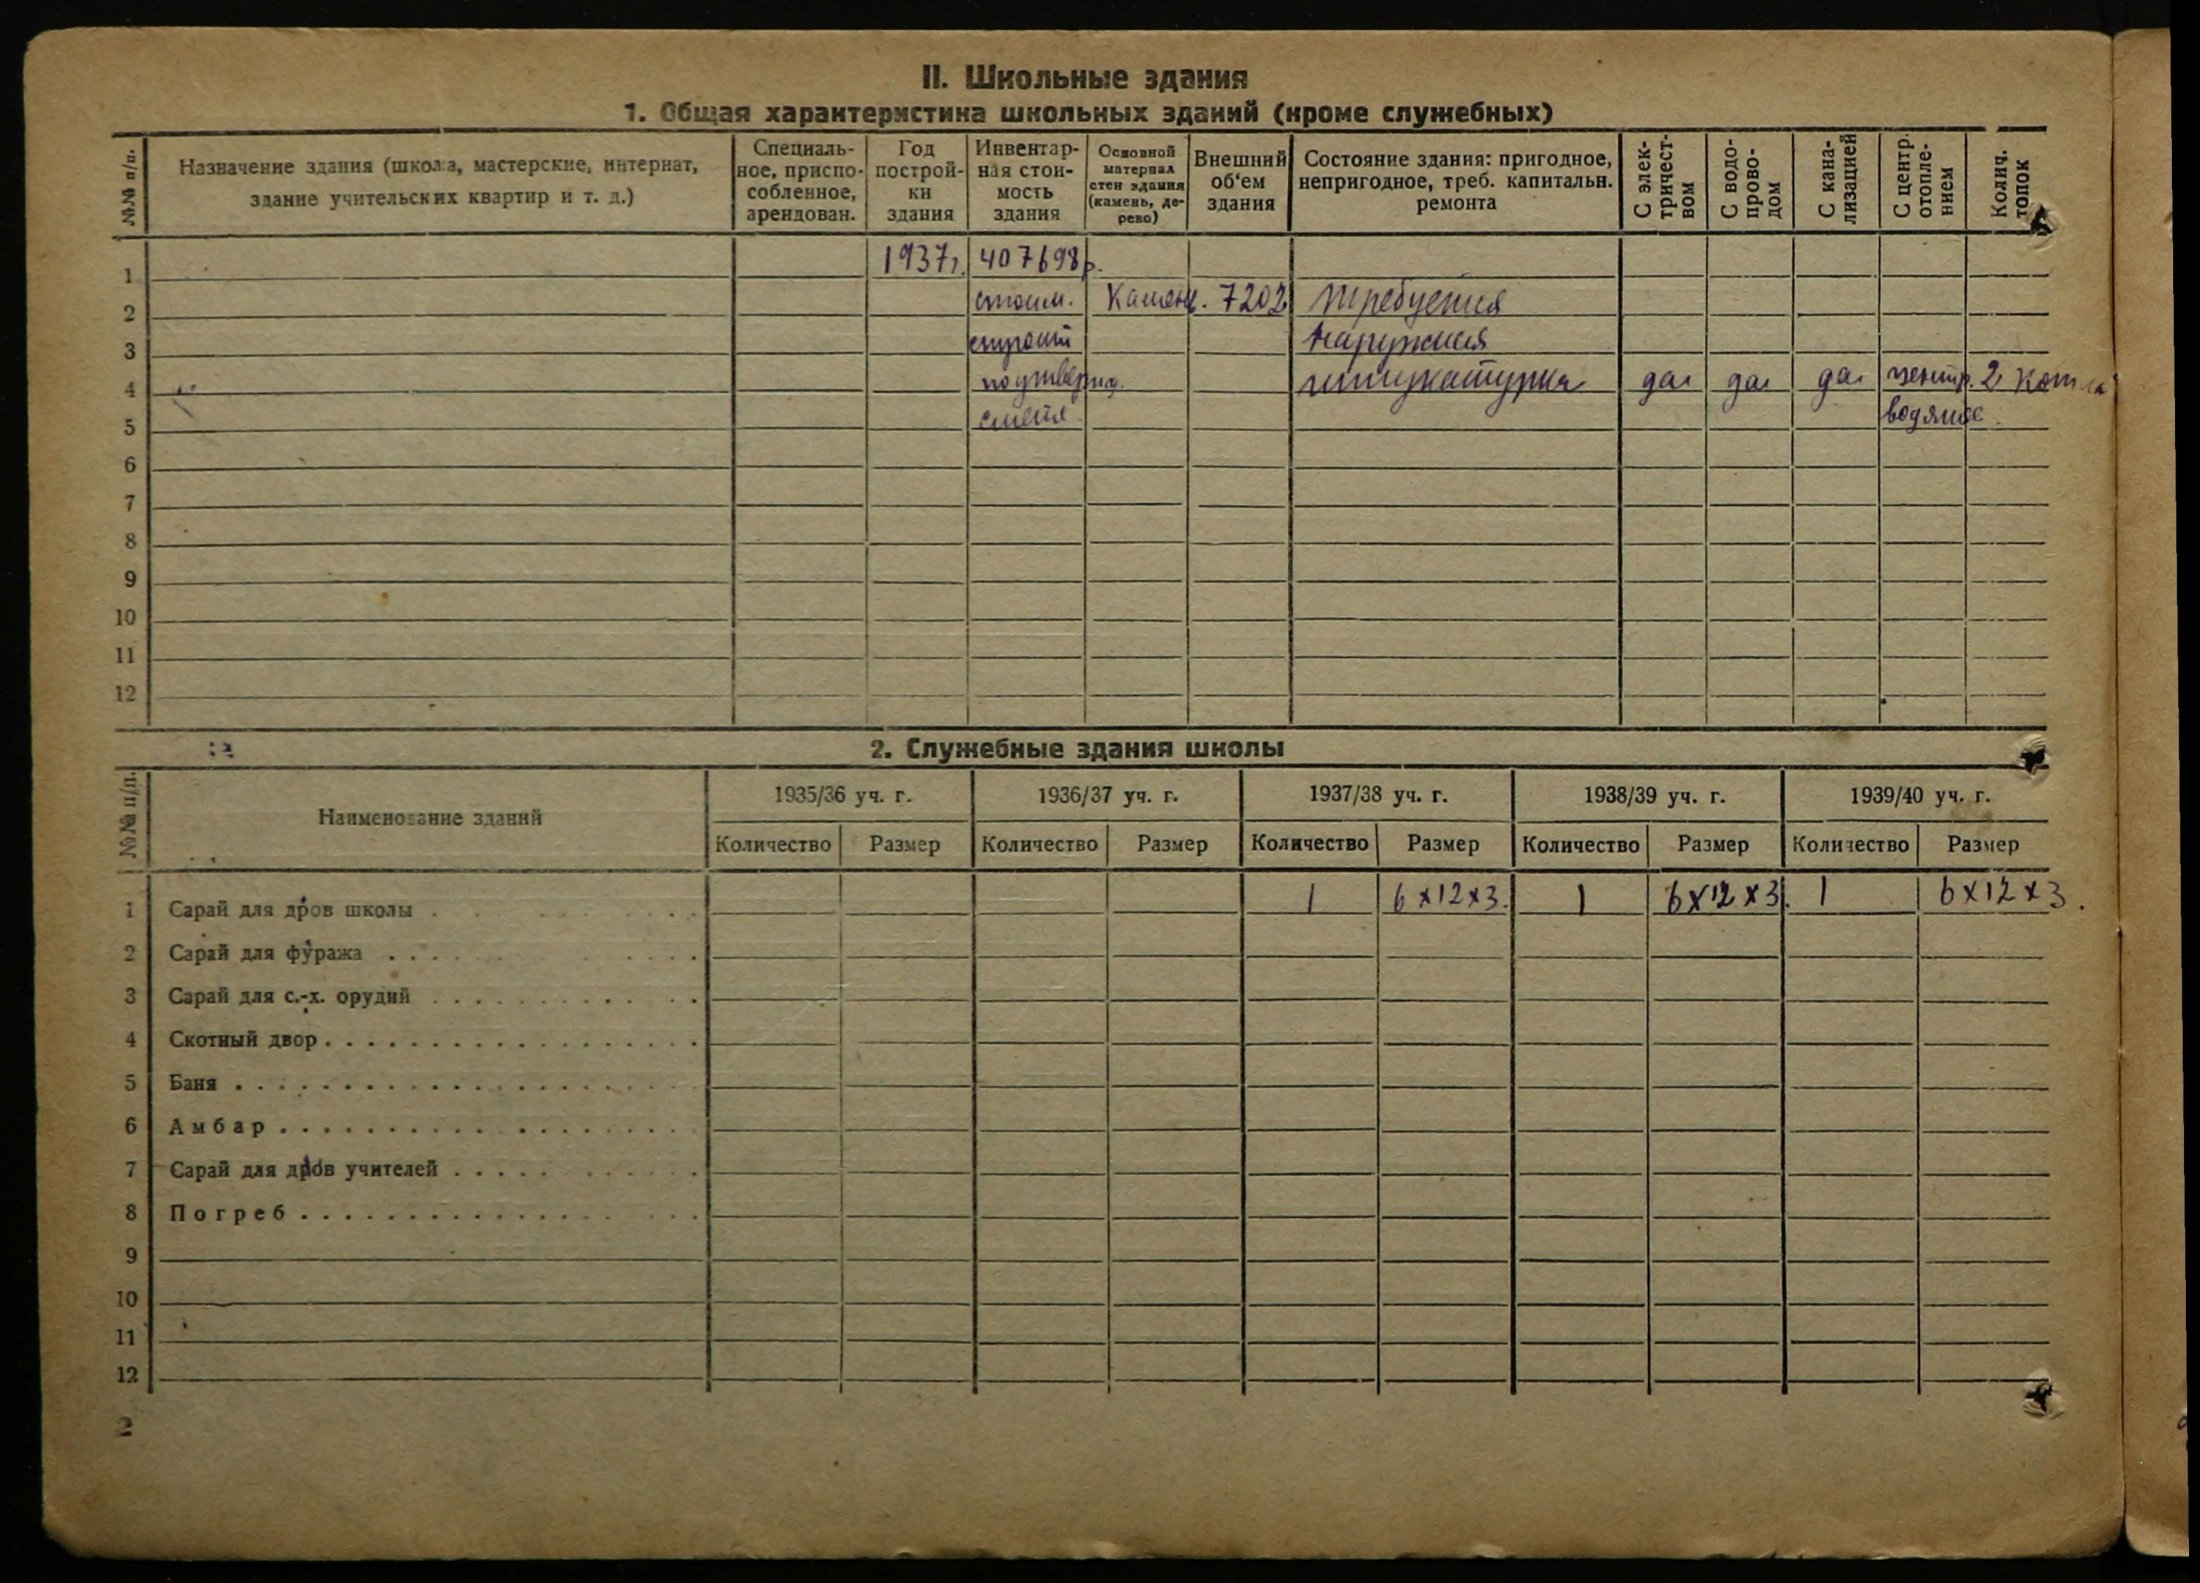 II. Школьные здания
1. Общая характеристика школьных зданий (кроме служебных)
№№ п/п.
Назначение здания (школа, мастерские, интернат,
здание учительских квартир и т. д.)
Специаль-
ное, приспо-
собленное,
арендован.
Год
построй-
ки
здания
Инвентар-
ная стои-
мость
здания
Основной
материал
стен здания
(камень, де-
рево)
Внешний
об'ем
здания
Состояние здания: пригодное,
непригодное, треб. капитальн.
ремонта
С элек-
тричест-
вом
С водо-
прово-
дом
С кана-
лизацией
С центр.
отопле-
нием
Колич.
топок
1 1937г. 407698р.
2 стоим. Камен. 7202 Требуется
3 наружная
4 по утвержд. штукатурка да да да центр. 2 котла
5 смете. водяное.
6
7
8
9
10
11
12
2. Служебные здания школы
№№ п/п.
Наименование зданий
1935/36 уч. г. 1936/37 уч. г. 1937/38 уч. г. 1938/39 уч. г. 1939/40 уч. г.
Количество Размер Количество Размер Количество Размер Количество Размер Количество Размер
1 Сарай для дров школы . . . . 1 6x12x3. 1 6x12x3. 1 6x12x3.
2 Сарай для фуража . . . .
3 Сарай для с.-х. орудий . . . .
4 Скотный двор . . . .
5 Баня . . . .
6 Амбар . . . .
7 Сарай для дров учителей . . . .
8 Погреб . . . .
9
10
11
12
2